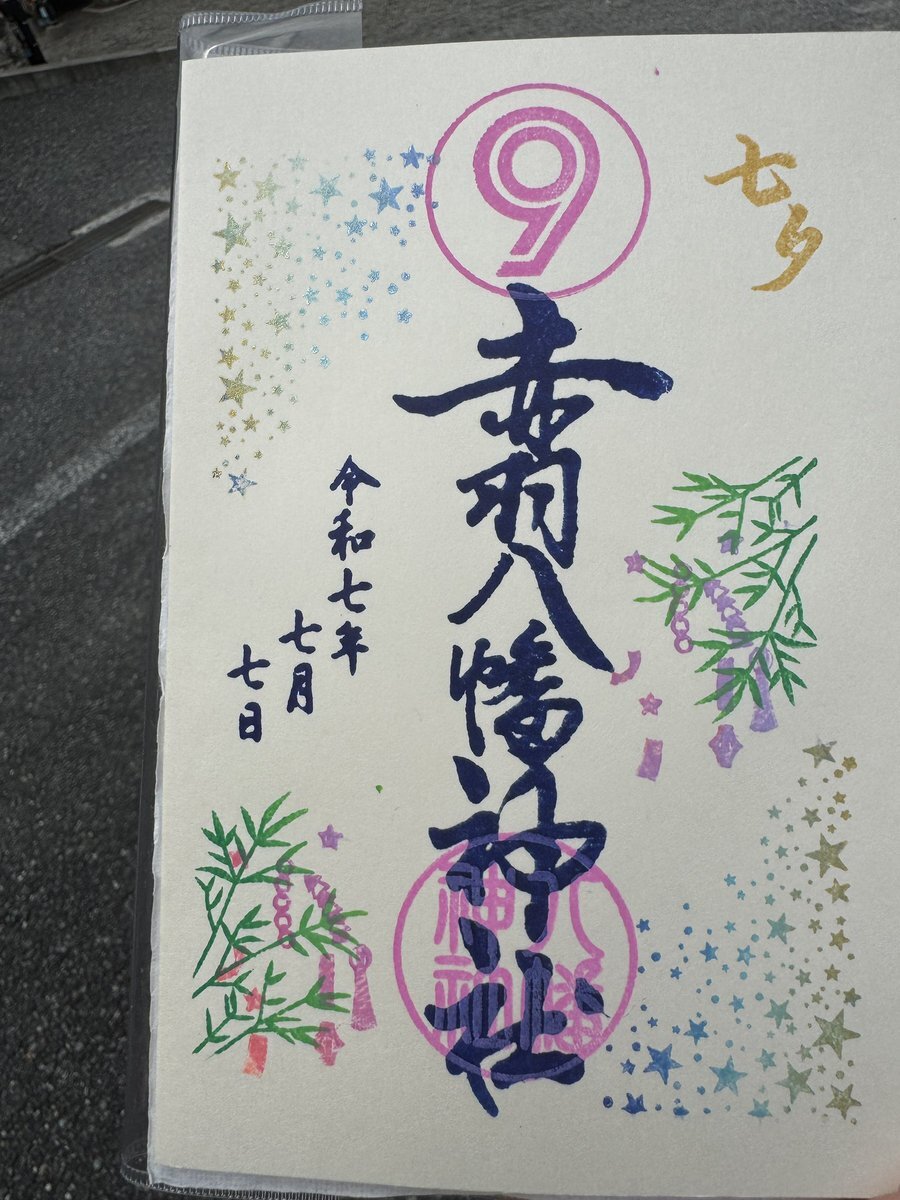 七夕
9
赤羽八幡神社
八幡
神社
令和七年
七月
七日